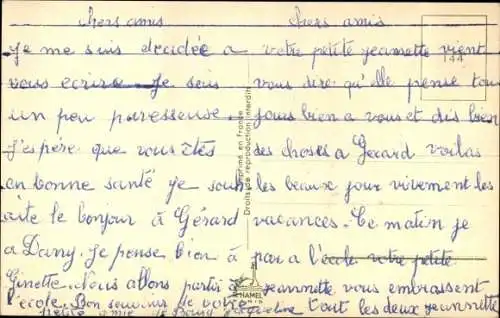 chers amis
Je me suis decidée a
vous ecrire. Je suis
un peu paresseuse.
J'espére que vous êtes
en bonne santé je souh
aite le bonjour à Gérard
a Dany. Je pense bien à
Ginette. Nous allons partir à
l'école. Bon souvenir de votre
petite amie de Dany
chers amis
votre petite jeannette vient
vous dire qu'elle pense tou
jours bien a vous et dis bien
des choses a Gerard voilas
les beaux jour vivement les
vacances. Ce matin je
par a l'école votre petite
jeannette vous embrassent
tout les deux jeannette
144
Imprimé en France
Droits de reproduction interdits